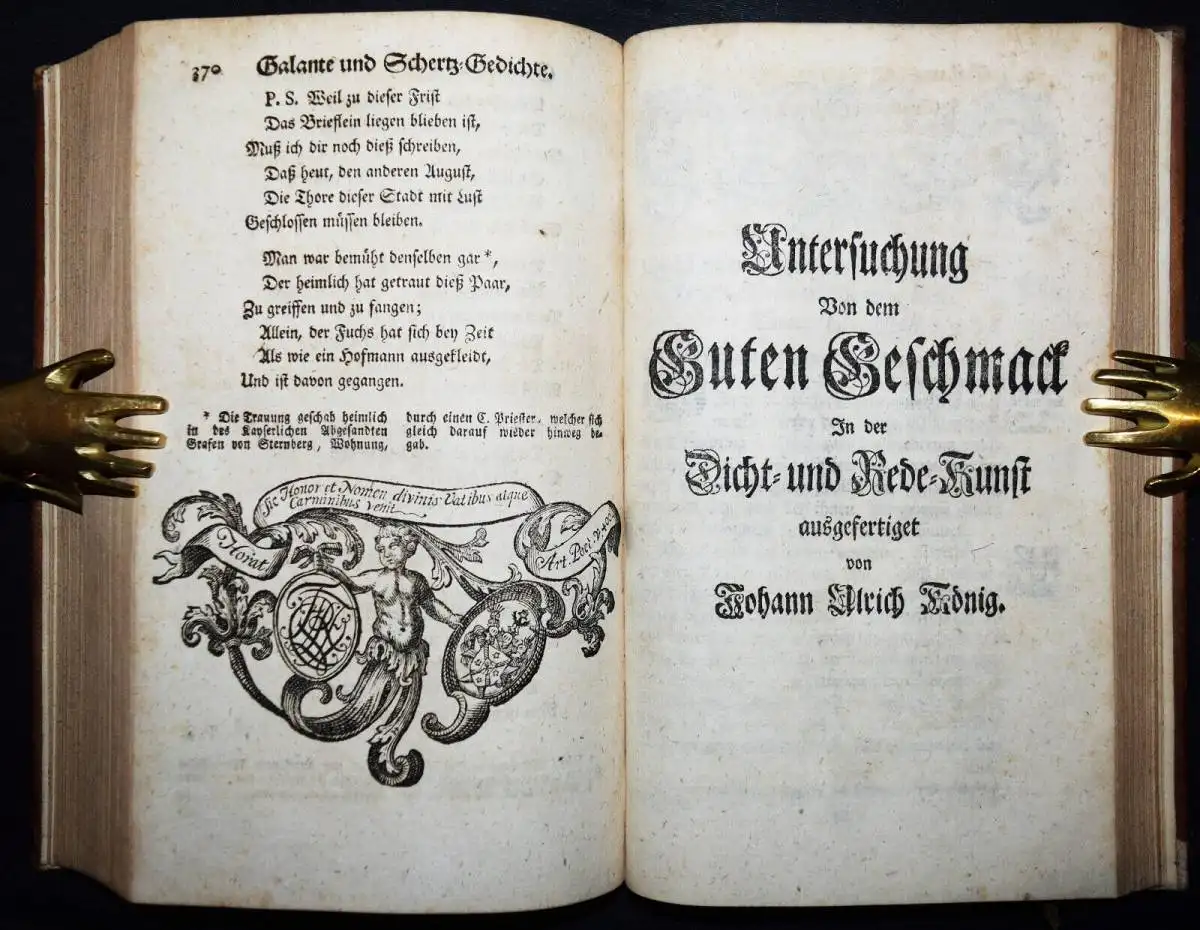 370 Galante und Schertz-Gedichte.
P. S. Weil zu dieser Frist
Das Brieflein liegen blieben ist,
Muß ich dir noch dieß schreiben,
Daß heut, den anderen August,
Die Thore dieser Stadt mit Lust
Geschlossen müssen bleiben.
Man war bemüht denselben gar *,
Der heimlich hat getraut dieß Paar,
Zu greiffen und zu fangen;
Allein, der Fuchs hat sich bey Zeit
Als wie ein Hofmann ausgekleidt,
Und ist davon gegangen.
* Die Trauung geschah heimlich
in des Kayserlichen Abgesandten
Grafen von Sternberg, Wohnung,
durch einen C. Priester, welcher sich
gleich darauf wieder hinweg be-
gab.
Sic Honor et Nomen divinis Vatibus atque
Carminibus venit
Horat.
Art. Poet.
Untersuchung
Von dem
Guten Geschmack
In der
Dicht- und Rede-Kunst
ausgefertiget
von
Johann Ulrich König.